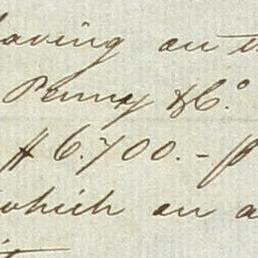 having on
Penny & Co.
$6.700.-
which on a